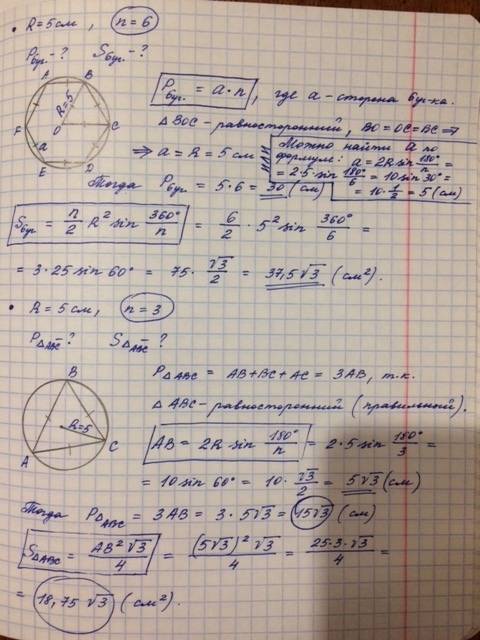 • R = 5 см, n = 6
P6уг. - ? S6уг. - ?
A B
R=5
F O C
a
E D
P6уг. = a · n, где a - сторона 6уг-ка.
△BOC - равносторонний, BO = OC = BC ⇒
⇒ a = R = 5 см
ИЛИ
Можно найти a по
формуле: a = 2R sin 180°/n =
= 2·5·sin 180°/6 = 10 sin 30° =
= 10 · 1/2 = 5 (см)
Тогда P6уг. = 5 · 6 = 30 (см)
S6уг. = n/2 R² sin 360°/n = 6/2 · 5² sin 360°/6 =
= 3 · 25 sin 60° = 75 · √3/2 = 37,5√3 (см²).
• R = 5 см, n = 3
P△ABC - ? S△ABC - ?
B
R=5
A C
P△ABC = AB + BC + AC = 3AB, т.к.
△ABC - равносторонний (правильный).
AB = 2R sin 180°/n = 2 · 5 sin 180°/3 =
= 10 sin 60° = 10 · √3/2 = 5√3 (см)
Тогда P△ABC = 3AB = 3 · 5√3 = 15√3 (см)
S△ABC = AB²√3/4 = (5√3)²√3/4 = 25·3·√3/4 =
= 18,75 √3 (см²).